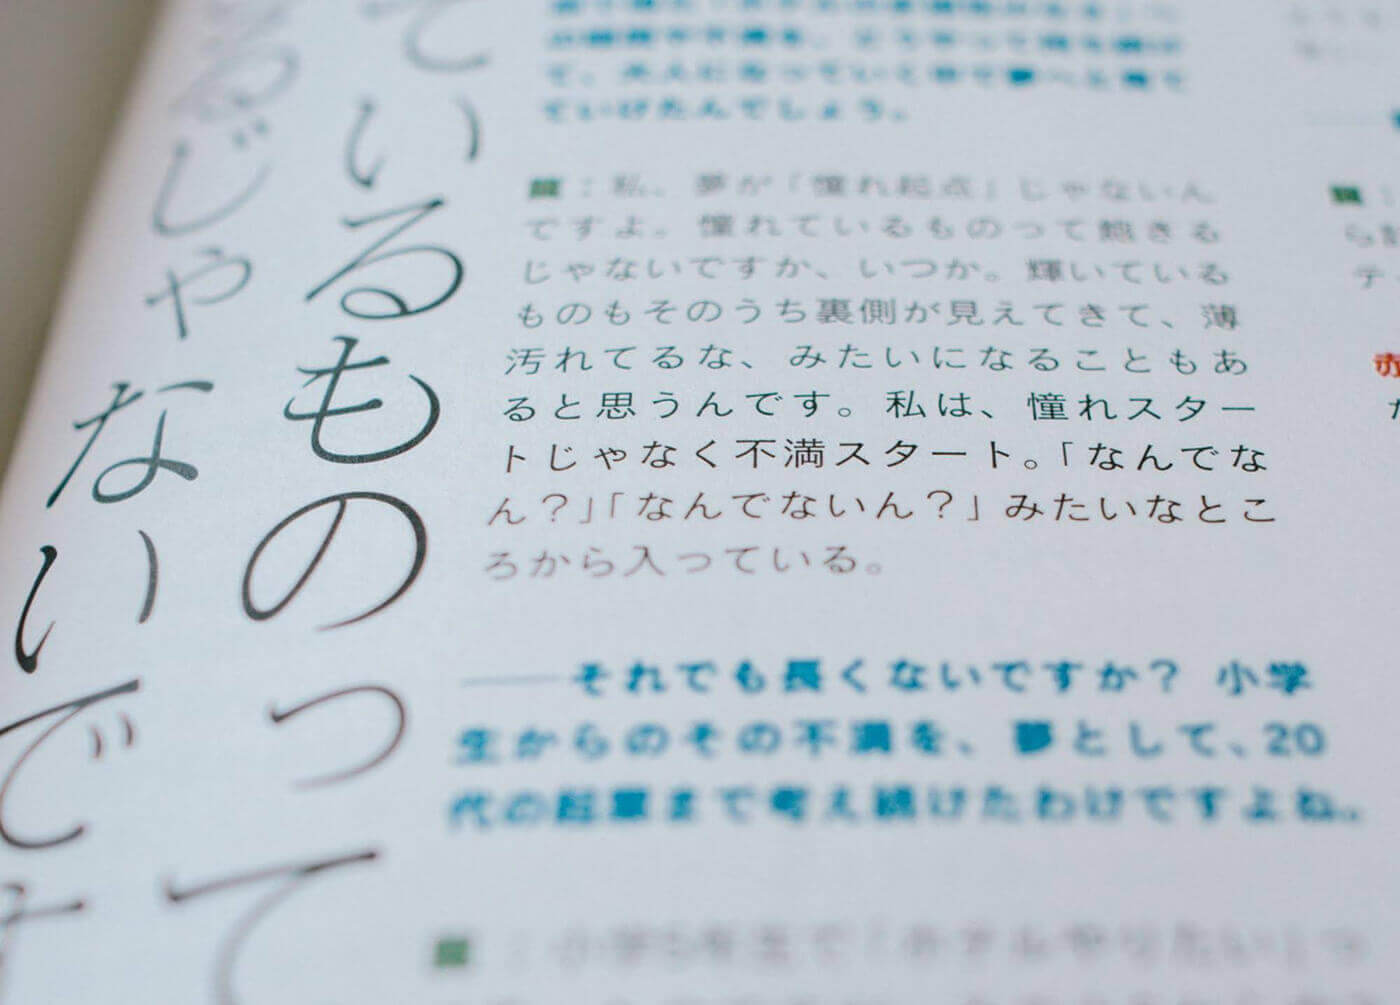 ているものって
るじゃないです
ていけたんでしょう。
：私、夢が「憧れ起点」じゃないん
ですよ。憧れているものって飽きる
じゃないですか、いつか。輝いている
ものもそのうち裏側が見えてきて、薄
汚れてるな、みたいになることもあ
ると思うんです。私は、憧れスター
トじゃなく不満スタート。「なんでな
ん？」「なんでないん？」みたいなとこ
ろから入っている。
——それでも長くないですか？ 小学
生からのその不満を、夢として、20
代の起業まで考え続けたわけですよね。
赤